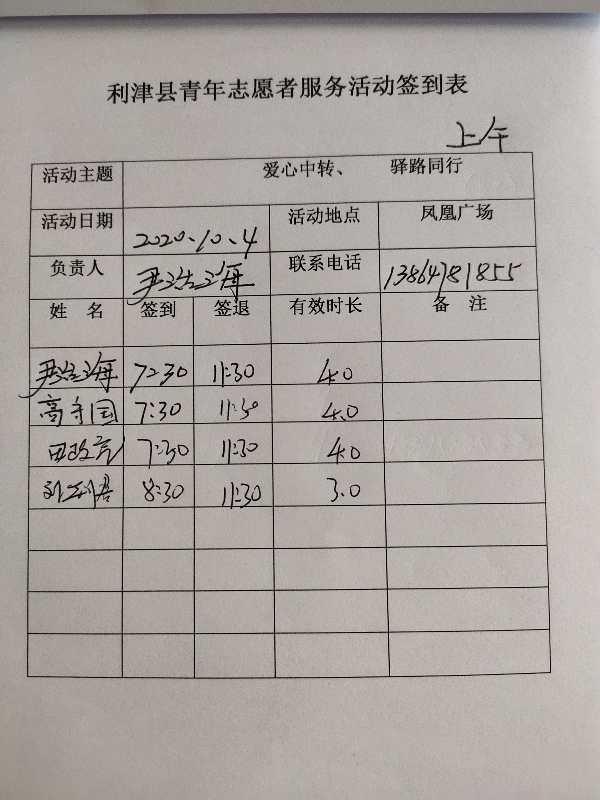 利津县青年志愿者服务活动签到表
上午
活动主题 爱心中转、 驿路同行
活动日期 2020、10、4 活动地点 凤凰广场
负责人 尹浩海 联系电话 13864781855
姓 名 签到 签退 有效时长 备 注
尹浩海 7:30 11:30 4.0
高守国 7:30 11:30 4.0
田政亮 7:30 11:30 4.0
8:30 11:30 3.0